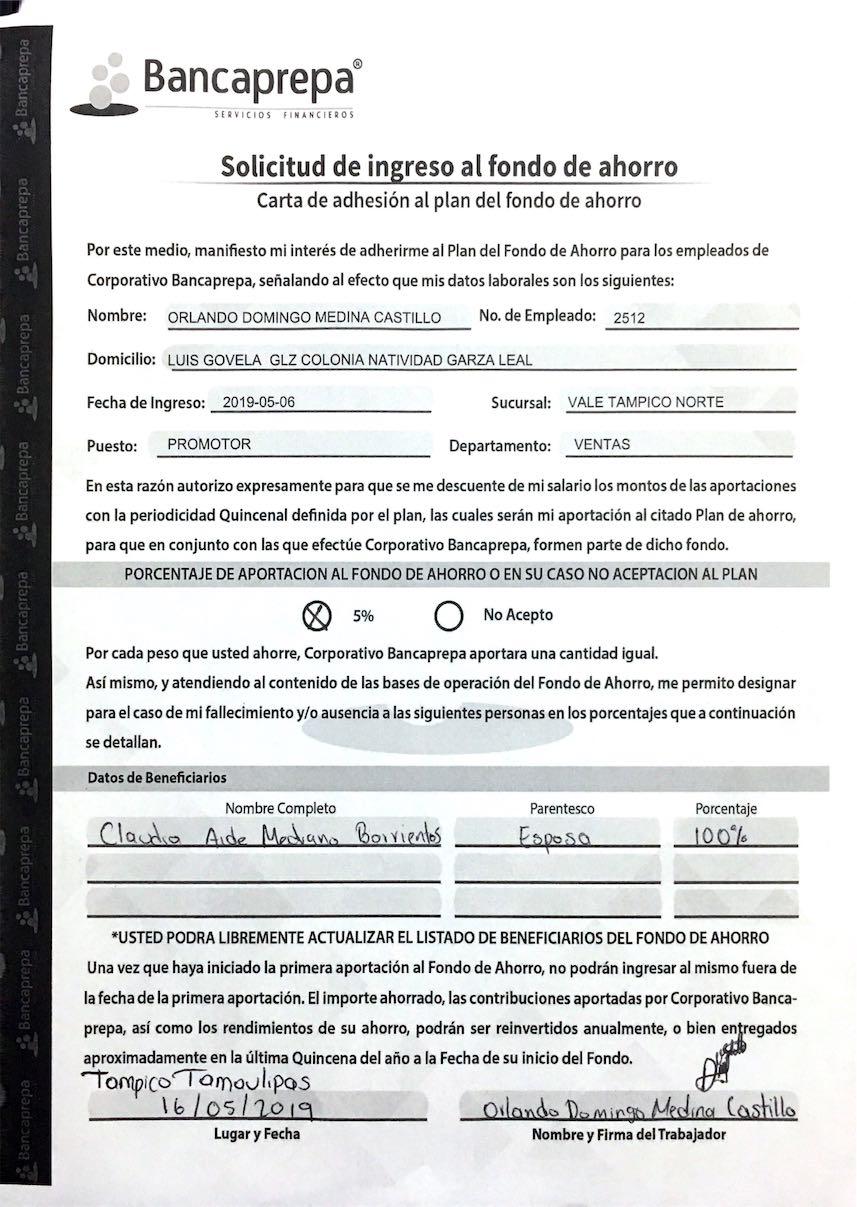 Bancaprepa®
SERVICIOS FINANCIEROS
Solicitud de ingreso al fondo de ahorro
Carta de adhesión al plan del fondo de ahorro
Por este medio, manifiesto mi interés de adherirme al Plan del Fondo de Ahorro para los empleados de
Corporativo Bancaprepa, señalando al efecto que mis datos laborales son los siguientes:
Nombre: ORLANDO DOMINGO MEDINA CASTILLO No. de Empleado: 2512
Domicilio: LUIS GOVELA GLZ COLONIA NATIVIDAD GARZA LEAL
Fecha de Ingreso: 2019-05-06 Sucursal: VALE TAMPICO NORTE
Puesto: PROMOTOR Departamento: VENTAS
En esta razón autorizo expresamente para que se me descuente de mi salario los montos de las aportaciones
con la periodicidad Quincenal definida por el plan, las cuales serán mi aportación al citado Plan de ahorro,
para que en conjunto con las que efectúe Corporativo Bancaprepa, formen parte de dicho fondo.
PORCENTAJE DE APORTACION AL FONDO DE AHORRO O EN SU CASO NO ACEPTACION AL PLAN
5% No Acepto
Por cada peso que usted ahorre, Corporativo Bancaprepa aportara una cantidad igual.
Así mismo, y atendiendo al contenido de las bases de operación del Fondo de Ahorro, me permito designar
para el caso de mi fallecimiento y/o ausencia a las siguientes personas en los porcentajes que a continuación
se detallan.
Datos de Beneficiarios
Nombre Completo Parentesco Porcentaje
Claudia Aide Medrano Barrientos Esposa 100%
*USTED PODRA LIBREMENTE ACTUALIZAR EL LISTADO DE BENEFICIARIOS DEL FONDO DE AHORRO
Una vez que haya iniciado la primera aportación al Fondo de Ahorro, no podrán ingresar al mismo fuera de
la fecha de la primera aportación. El importe ahorrado, las contribuciones aportadas por Corporativo Banca-
prepa, así como los rendimientos de su ahorro, podrán ser reinvertidos anualmente, o bien entregados
aproximadamente en la última Quincena del año a la Fecha de su inicio del Fondo.
Tampico Tamaulipas
16/05/2019 Orlando Domingo Medina Castillo
Lugar y Fecha Nombre y Firma del Trabajador
Bancaprepa
Bancaprepa
Bancaprepa
Bancaprepa
Bancaprepa
Bancaprepa
Bancaprepa
Bancaprepa
Bancaprepa